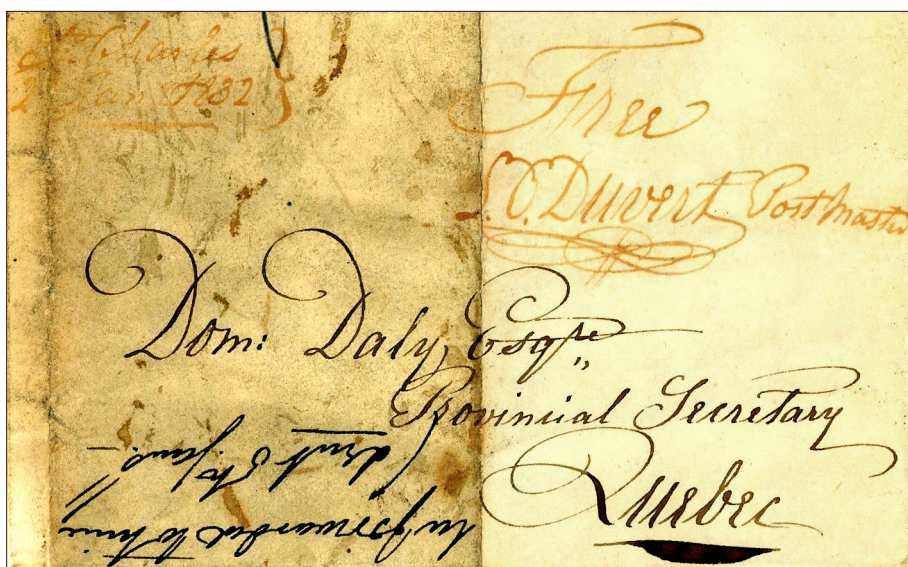 St. Charles
2 Jan 1832
Free
Duvert Post Master
Dom: Daly, Esqre
Provincial Secretary
Quebec
forwarded to him